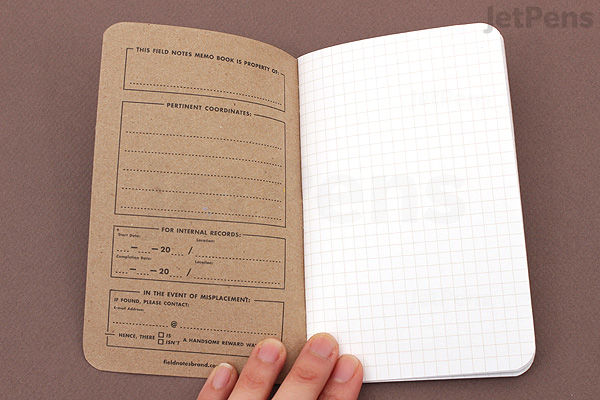 JetPens
THIS FIELD NOTES MEMO BOOK IS PROPERTY OF:
PERTINENT COORDINATES:
FOR INTERNAL RECORDS:
Start Date: Location:
— — 20 /
Completion Date: Location:
— — 20 /
IN THE EVENT OF MISPLACEMENT:
IF FOUND, PLEASE CONTACT:
E-mail Address:
@
HENCE, THERE IS
ISN'T A HANDSOME REWARD
fieldnotesbrand